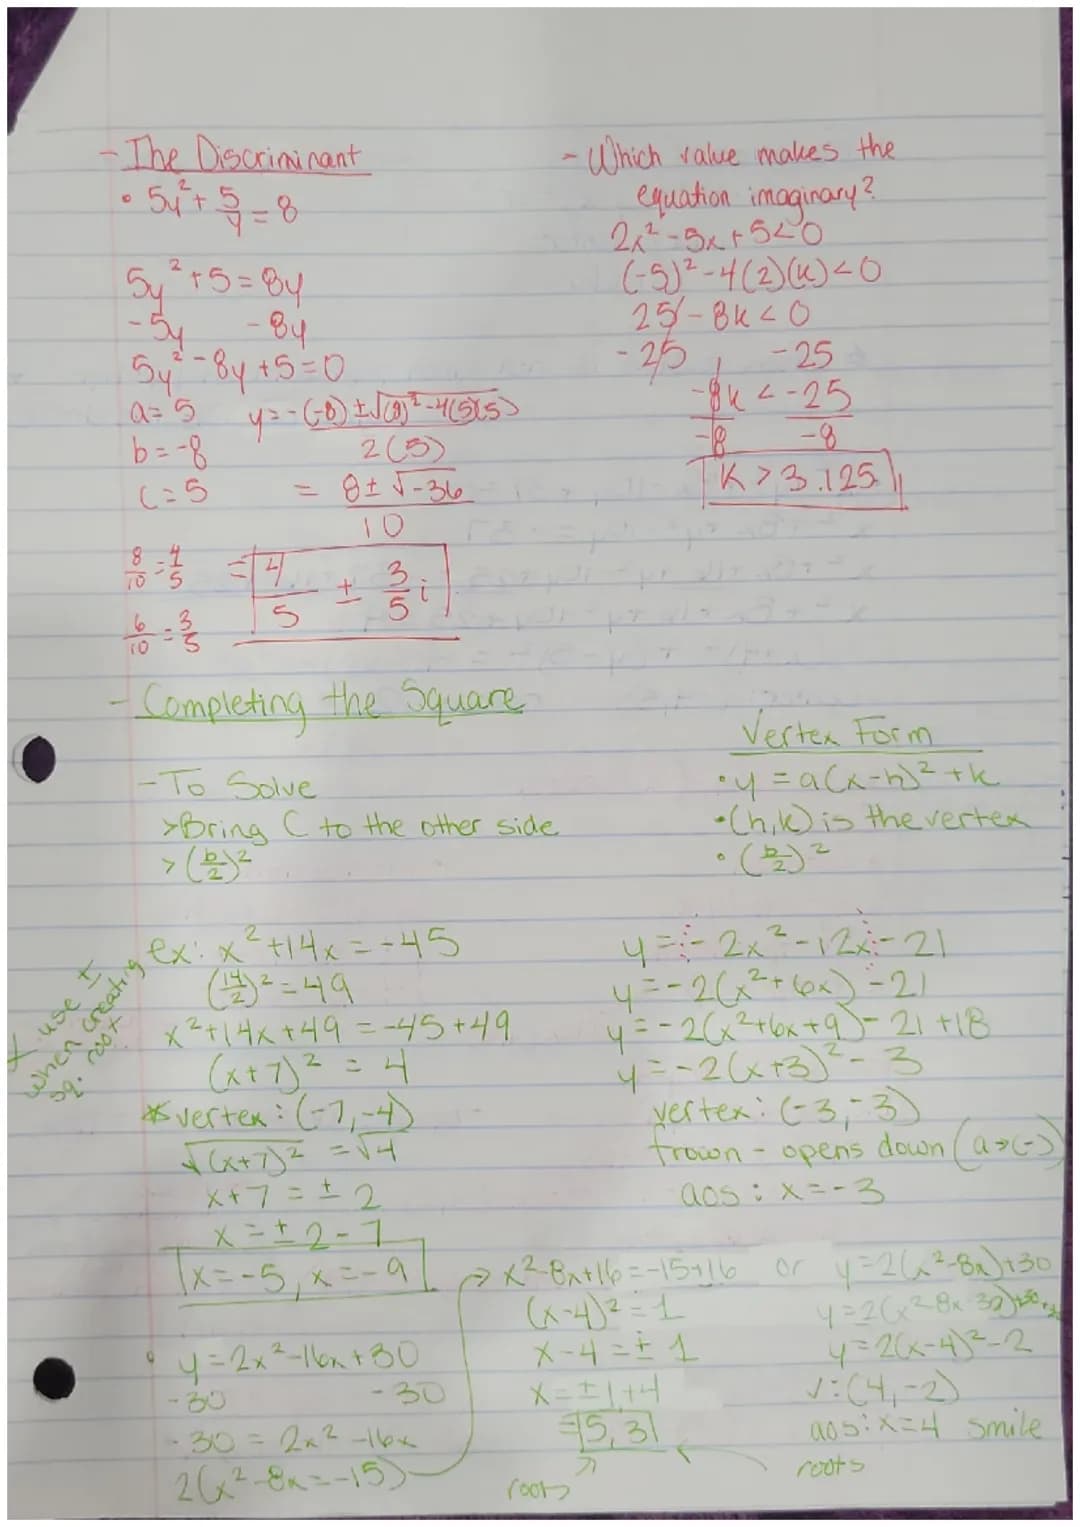 - The Discriminant
• 5y² + 5/y = 8
5y² + 5 = 8y
-5y -8y
5y² - 8y + 5 = 0
a = 5 y = -(-8) ± √(8)² - 4(5)(5)
b = -8 2(5)
c = 5 = 8 ± √-36
10
8/10 = 4/5 = 4/5 ± 3/5 i
6/10 = 3/5
- Which value makes the
equation imaginary?
2x² - 5x + 5 < 0
(-5)² - 4(2)(k) < 0
25 - 8k < 0
-25 -25
-8k < -25
-8 -8
K > 3.125
- Completing the Square
- To Solve
> Bring C to the other side
> (b/2)²
Vertex Form
• y = a(x-h)² + k
• (h,k) is the vertex
• (b/2)²
ex: x² + 14x = -45
(14/2)² = 49
x² + 14x + 49 = -45 + 49
(x+7)² = 4
* vertex: (-7,-4)
√(x+7)² = √4
x + 7 = ± 2
x = ± 2 - 7
x = -5, x = -9
use ±
when creating
sq. root
y = -2x² - 12x - 21
y = -2(x² + 6x) - 21
y = -2(x² + 6x + 9) - 21 + 18
y = -2(x+3)² - 3
vertex: (-3,-3)
frown - opens down (a→(-)
aos: x = -3
• y = 2x² - 16x + 30
-30 -30
-30 = 2x² - 16x
2(x² - 8x = -15)
→ x² - 8x + 16 = -15 + 16
(x-4)² = 1
x - 4 = ± 1
x = ± 1 + 4
= 5, 3
roots
or y = 2(x² - 8x) + 30
y = 2(x-4)² - 2
v: (4,-2)
aos: x = 4 smile
roots